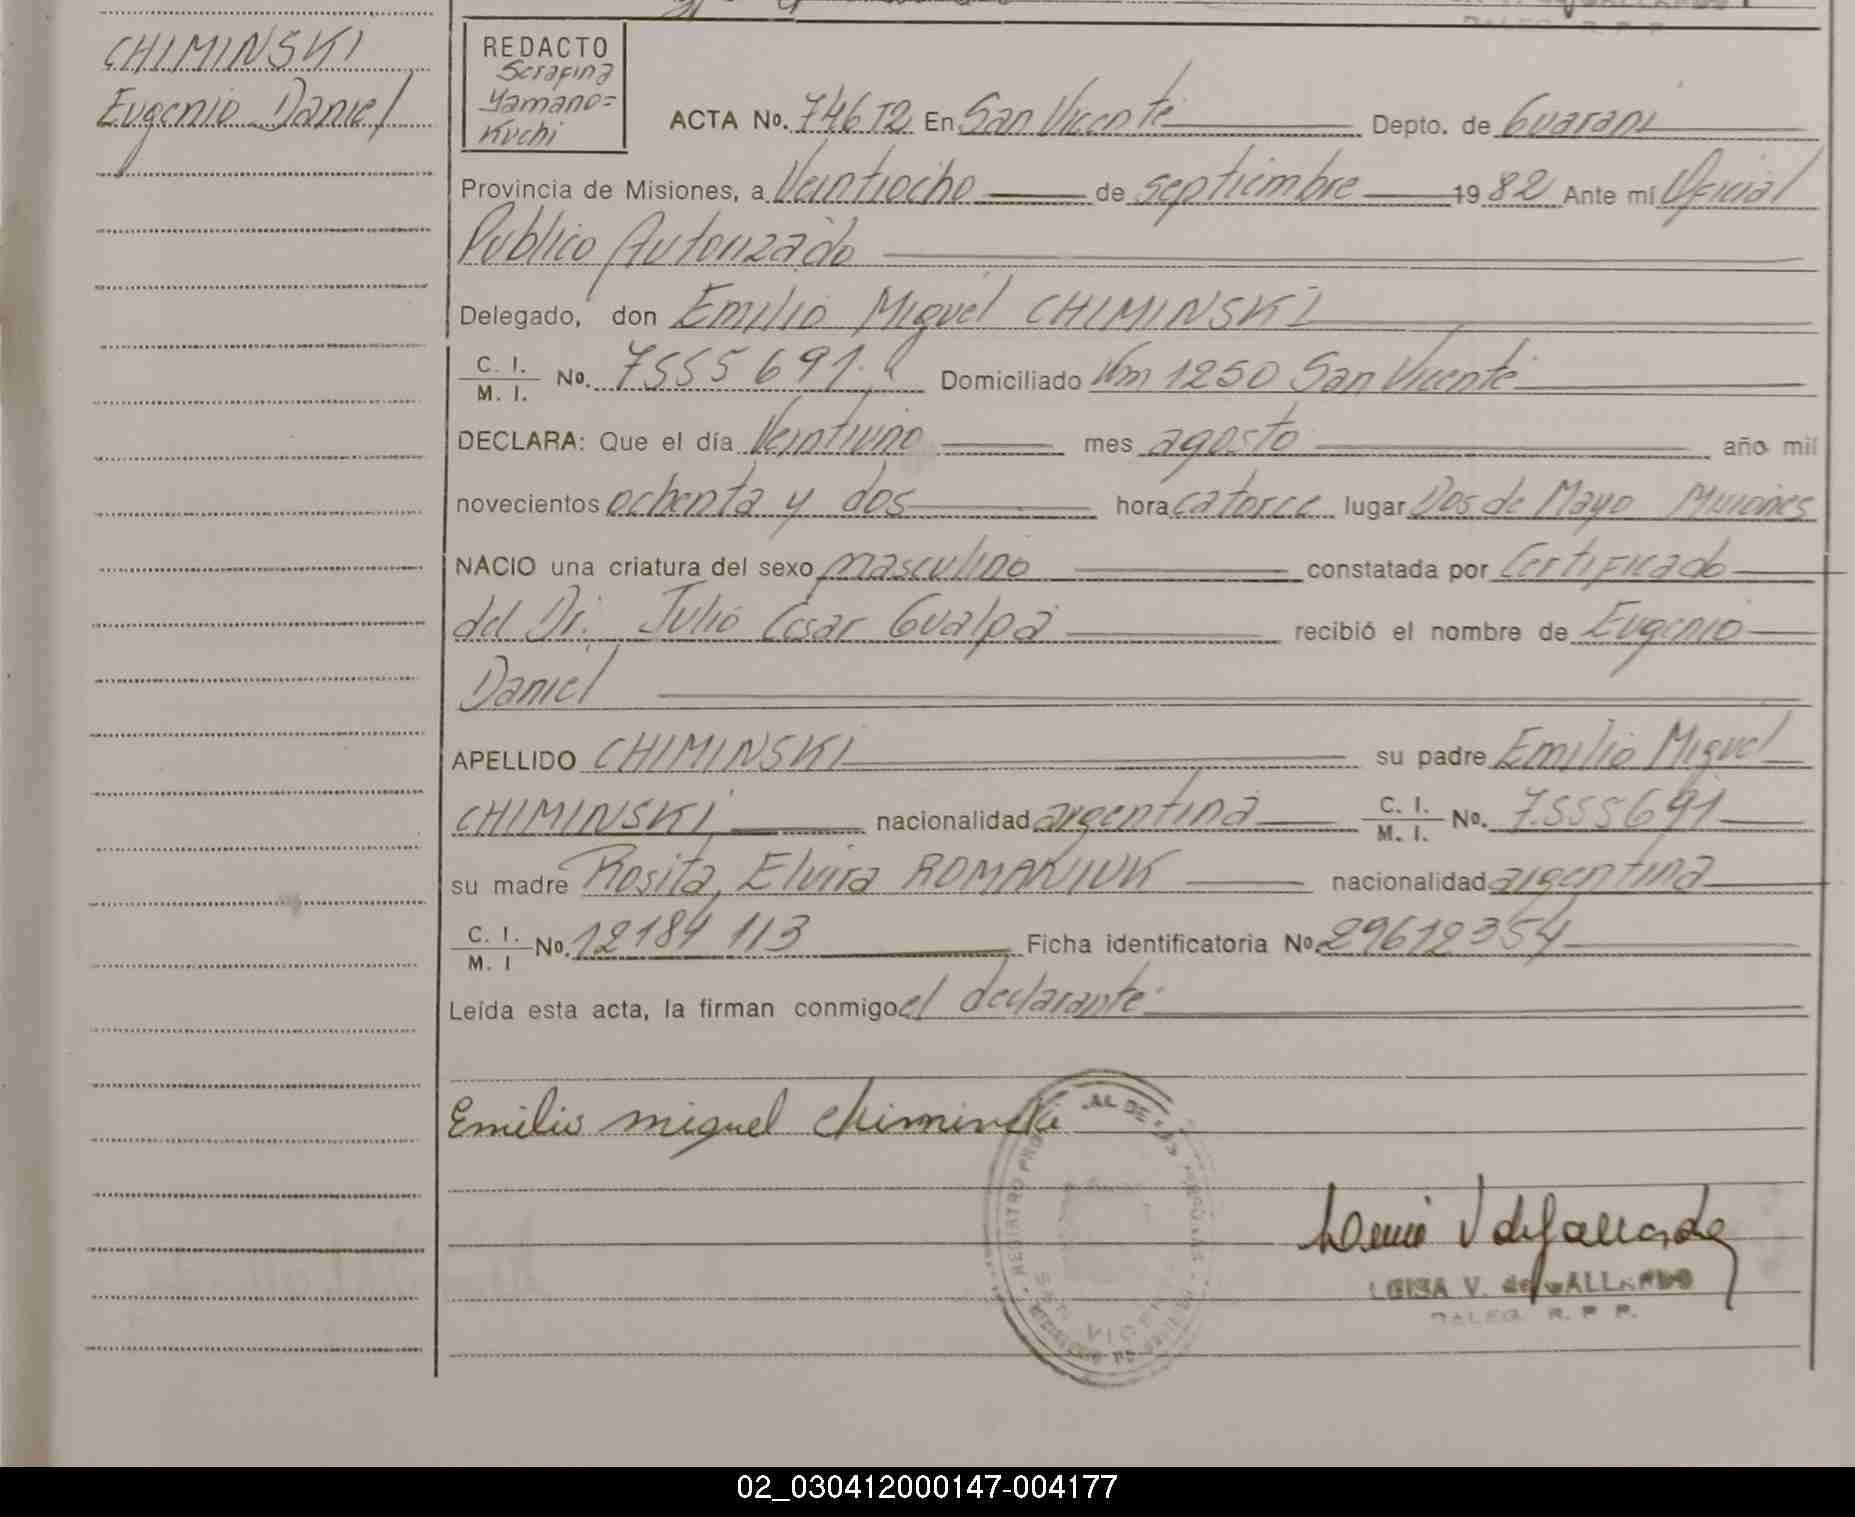 CHIMINSKI
Eugenio Daniel
REDACTO
Serafina
Yamano=
Kuchi
ACTA No. 746 T2 En San Vicente Depto. de Guarani
Provincia de Misiones, a Veintiocho de septiembre 1982 Ante mí Oficial
Publico Autorizado
Delegado, don Emilio Miguel CHIMINSKI
C. I.
M. I. No. 7555691. Domiciliado Km 1250 San Vicente
DECLARA: Que el día Veintiuno mes agosto año mil
novecientos ochenta y dos hora catorce lugar Dos de Mayo Misiones
NACIO una criatura del sexo masculino constatada por Certificado
del Dr. Julio Cesar Gualpa recibió el nombre de Eugenio
Daniel
APELLIDO CHIMINSKI su padre Emilio Miguel
CHIMINSKI nacionalidad argentina C. I.
M. I. No. 7.555691
su madre Rosita Elvira ROMANIUK nacionalidad argentina
C. I.
M. I No. 12184 113 Ficha identificatoria No. 29612354
Leída esta acta, la firman conmigo el declarante
Emilio miguel Chiminski
REGISTRO PRO AL DE LAS
LUISA V. de GALLARDO
R. P. P.
02_030412000147-004177